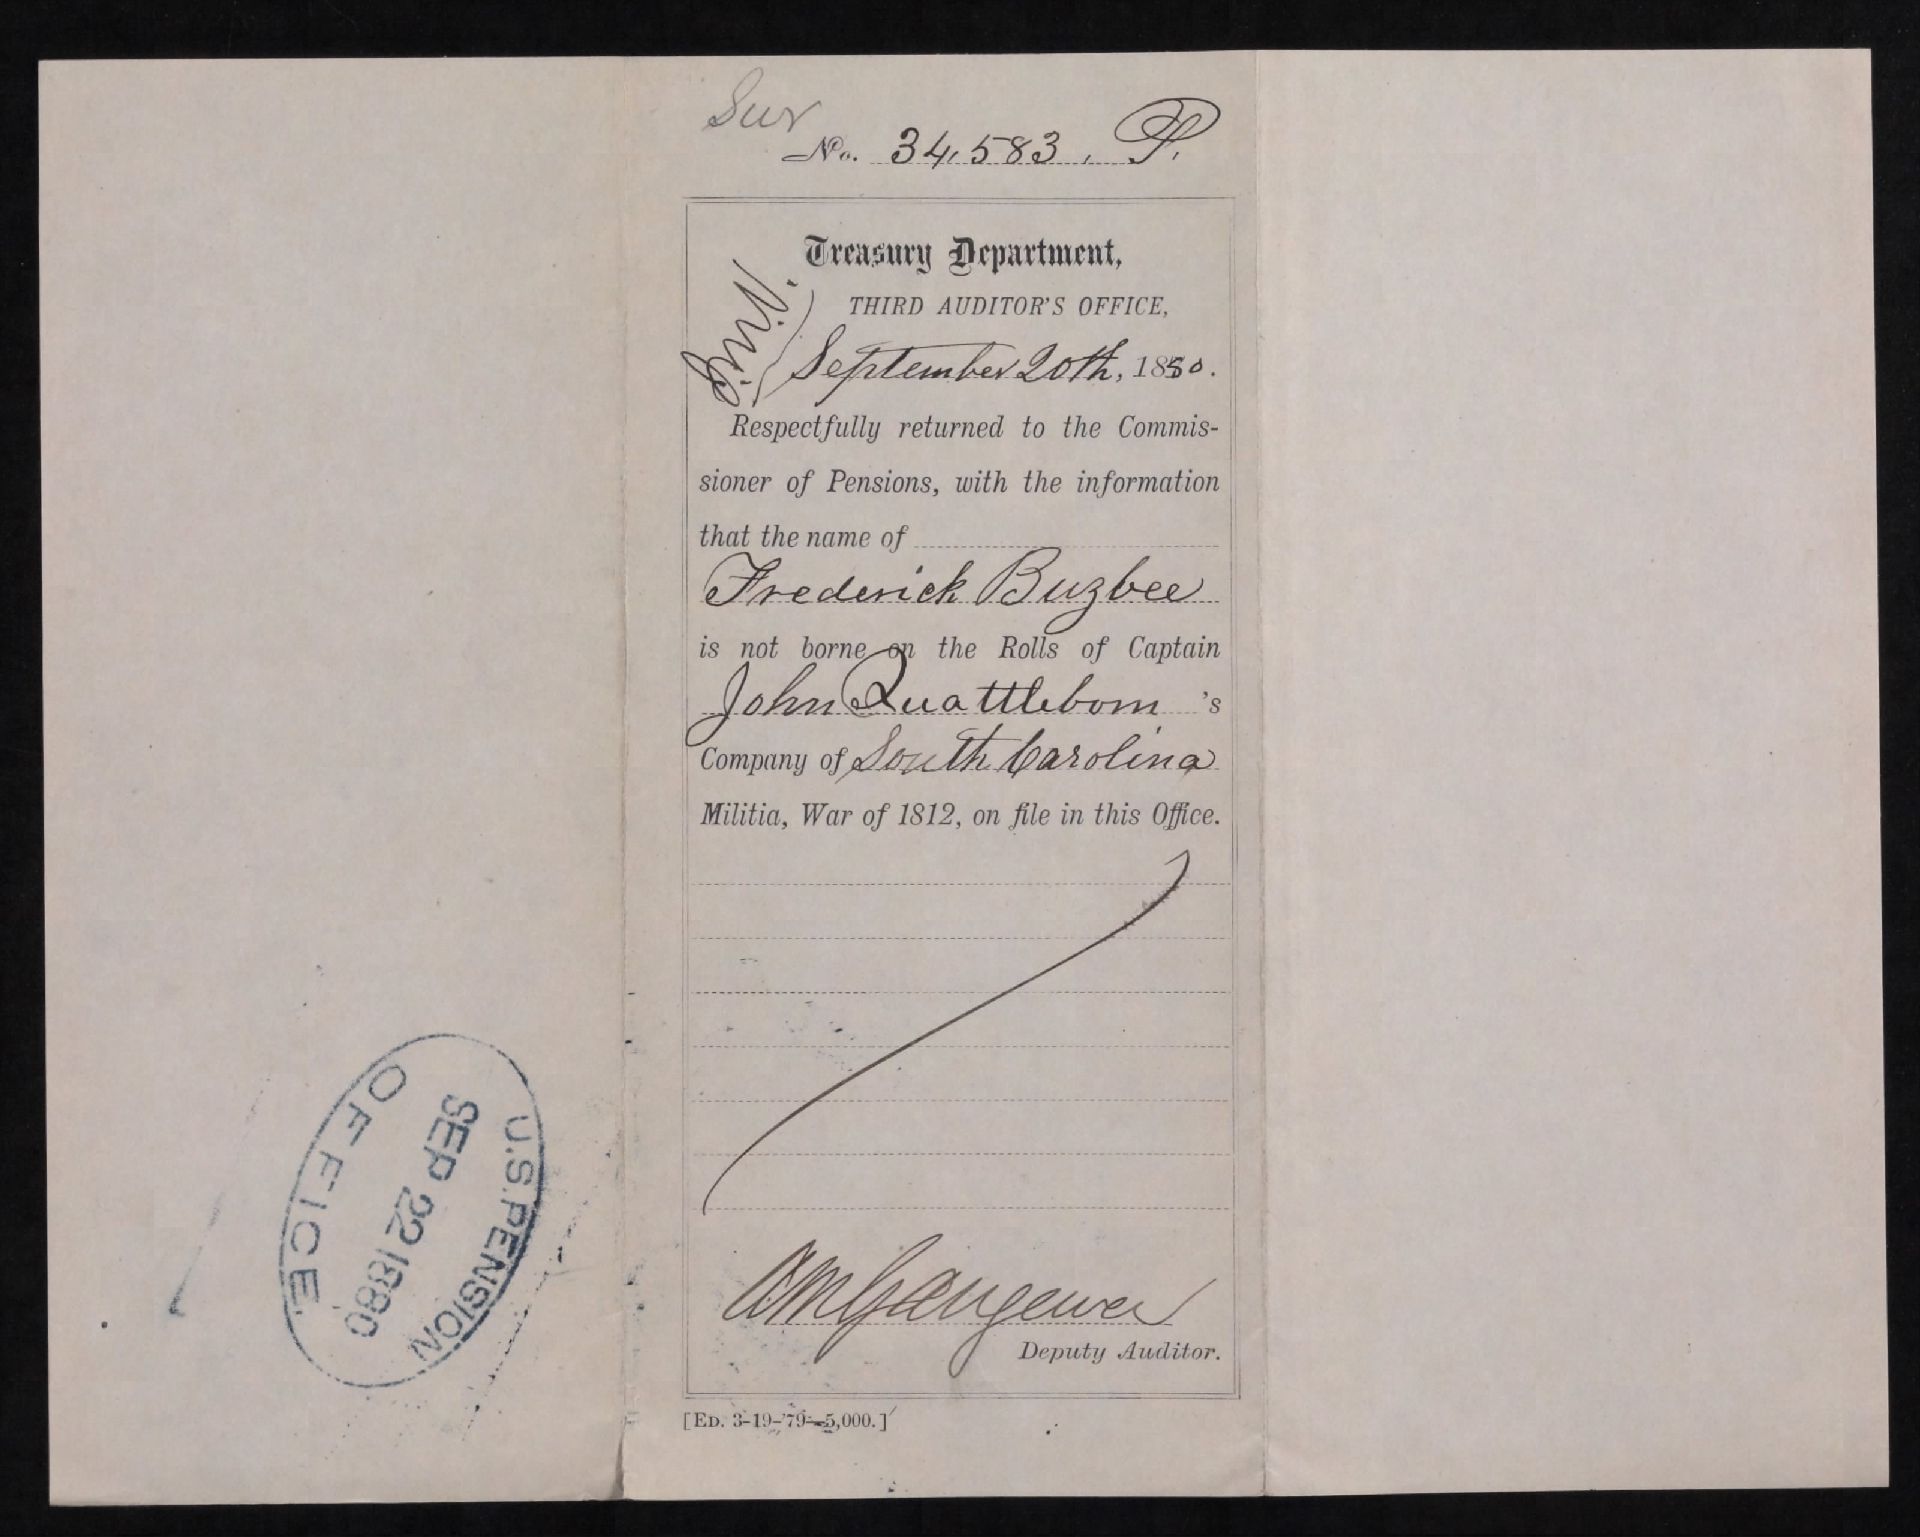 Sur
No. 34,583, P.
Treasury Department,
THIRD AUDITOR'S OFFICE,
September 20th, 1880.
Respectfully returned to the Commis-
sioner of Pensions, with the information
that the name of
Frederick Buzbee
is not borne on the Rolls of Captain
John Quattlebom 's
Company of South Carolina
Militia, War of 1812, on file in this Office.
AM Gangewer
Deputy Auditor.
[ED. 3-19-'79—5,000.]
U.S. PENSION
SEP 22 1880
OFFICE.